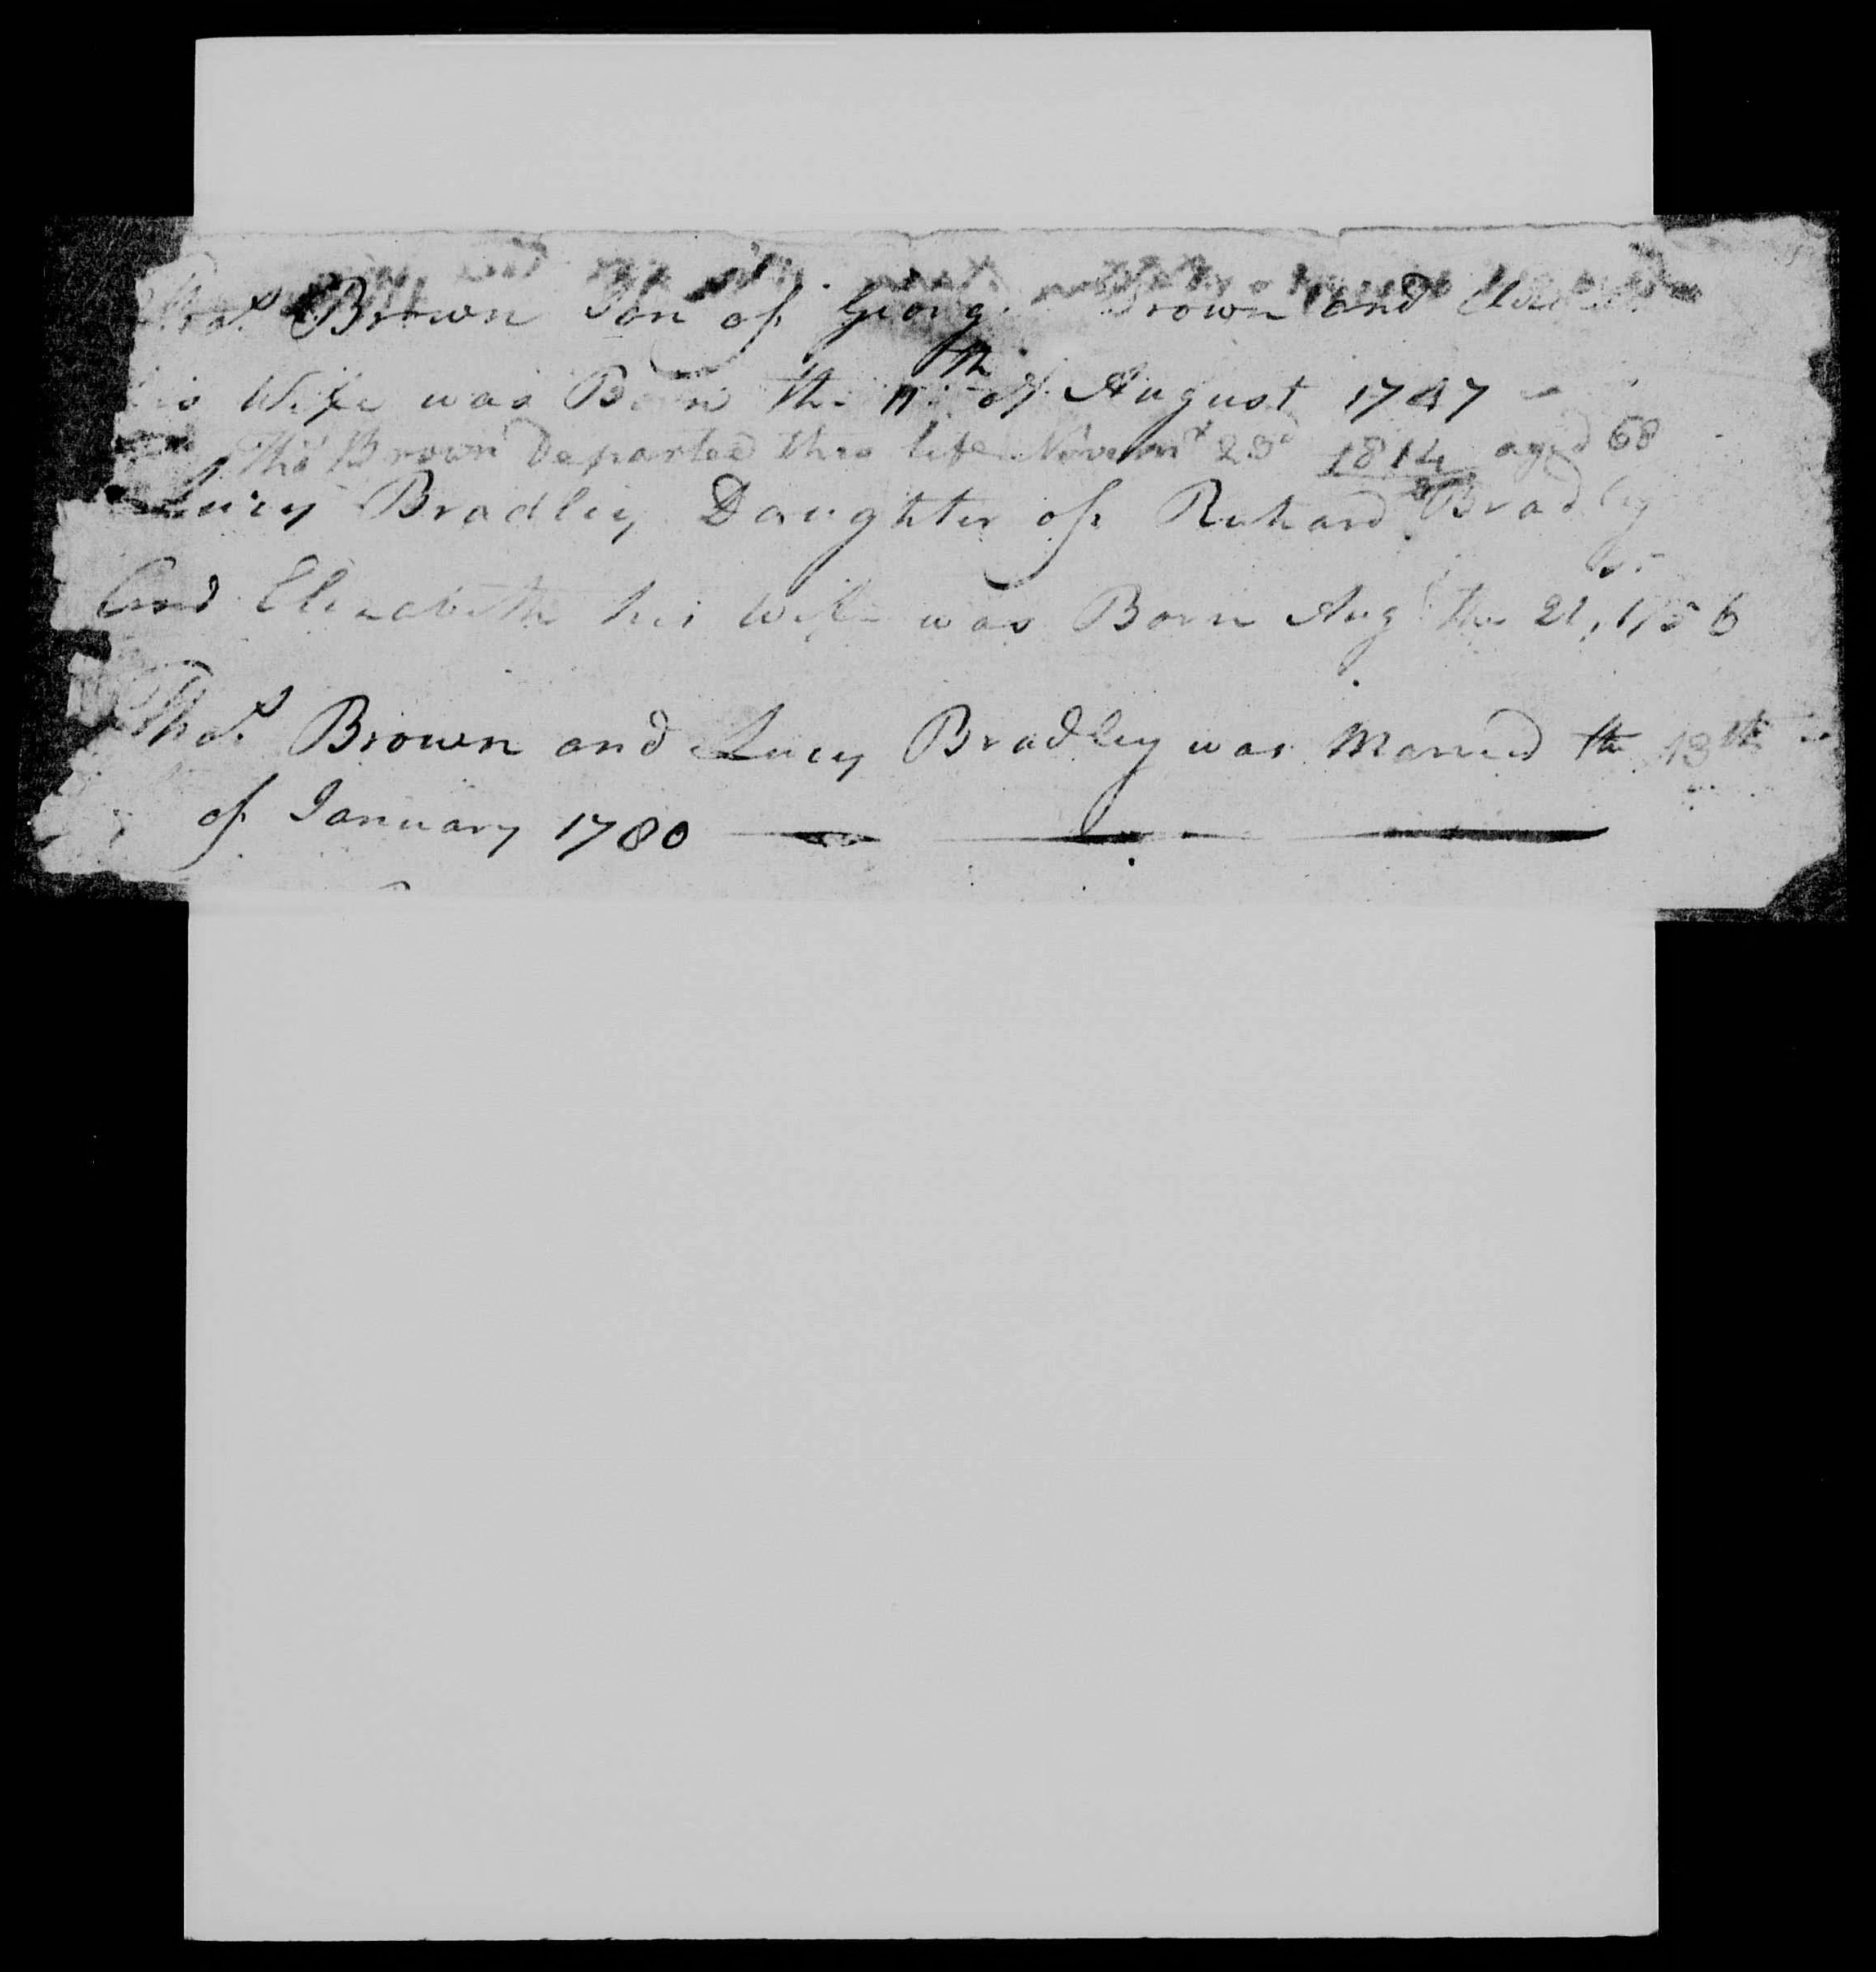 Thos. Brown Son of George Brown and
his Wife was Born the 11th of August 1747
Tho' Brown Departed this life Novemr 23d 1814 aged 68
Lucy Bradley Daughter of Richard Bradley
And Elizabeth his Wife was Born Augt the 21, 1756
Thos. Brown and Lucy Bradley was Married the 13th
of January 1780